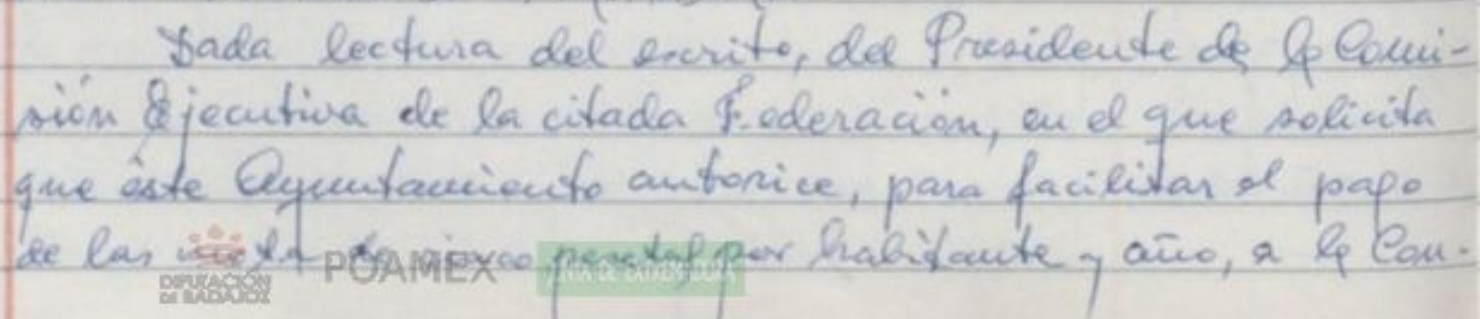 Dada lectura del escrito, del Presidente de la Comi-
sión Ejecutiva de la citada Federación, en el que solicita
que éste Ayuntamiento autorice, para facilitar el pago
de las pesetas por habitante y año, a la Con-
DIPUTACIÓN
DE BADAJOZ
PUAMEX
JUNTA DE EXTREMADURA